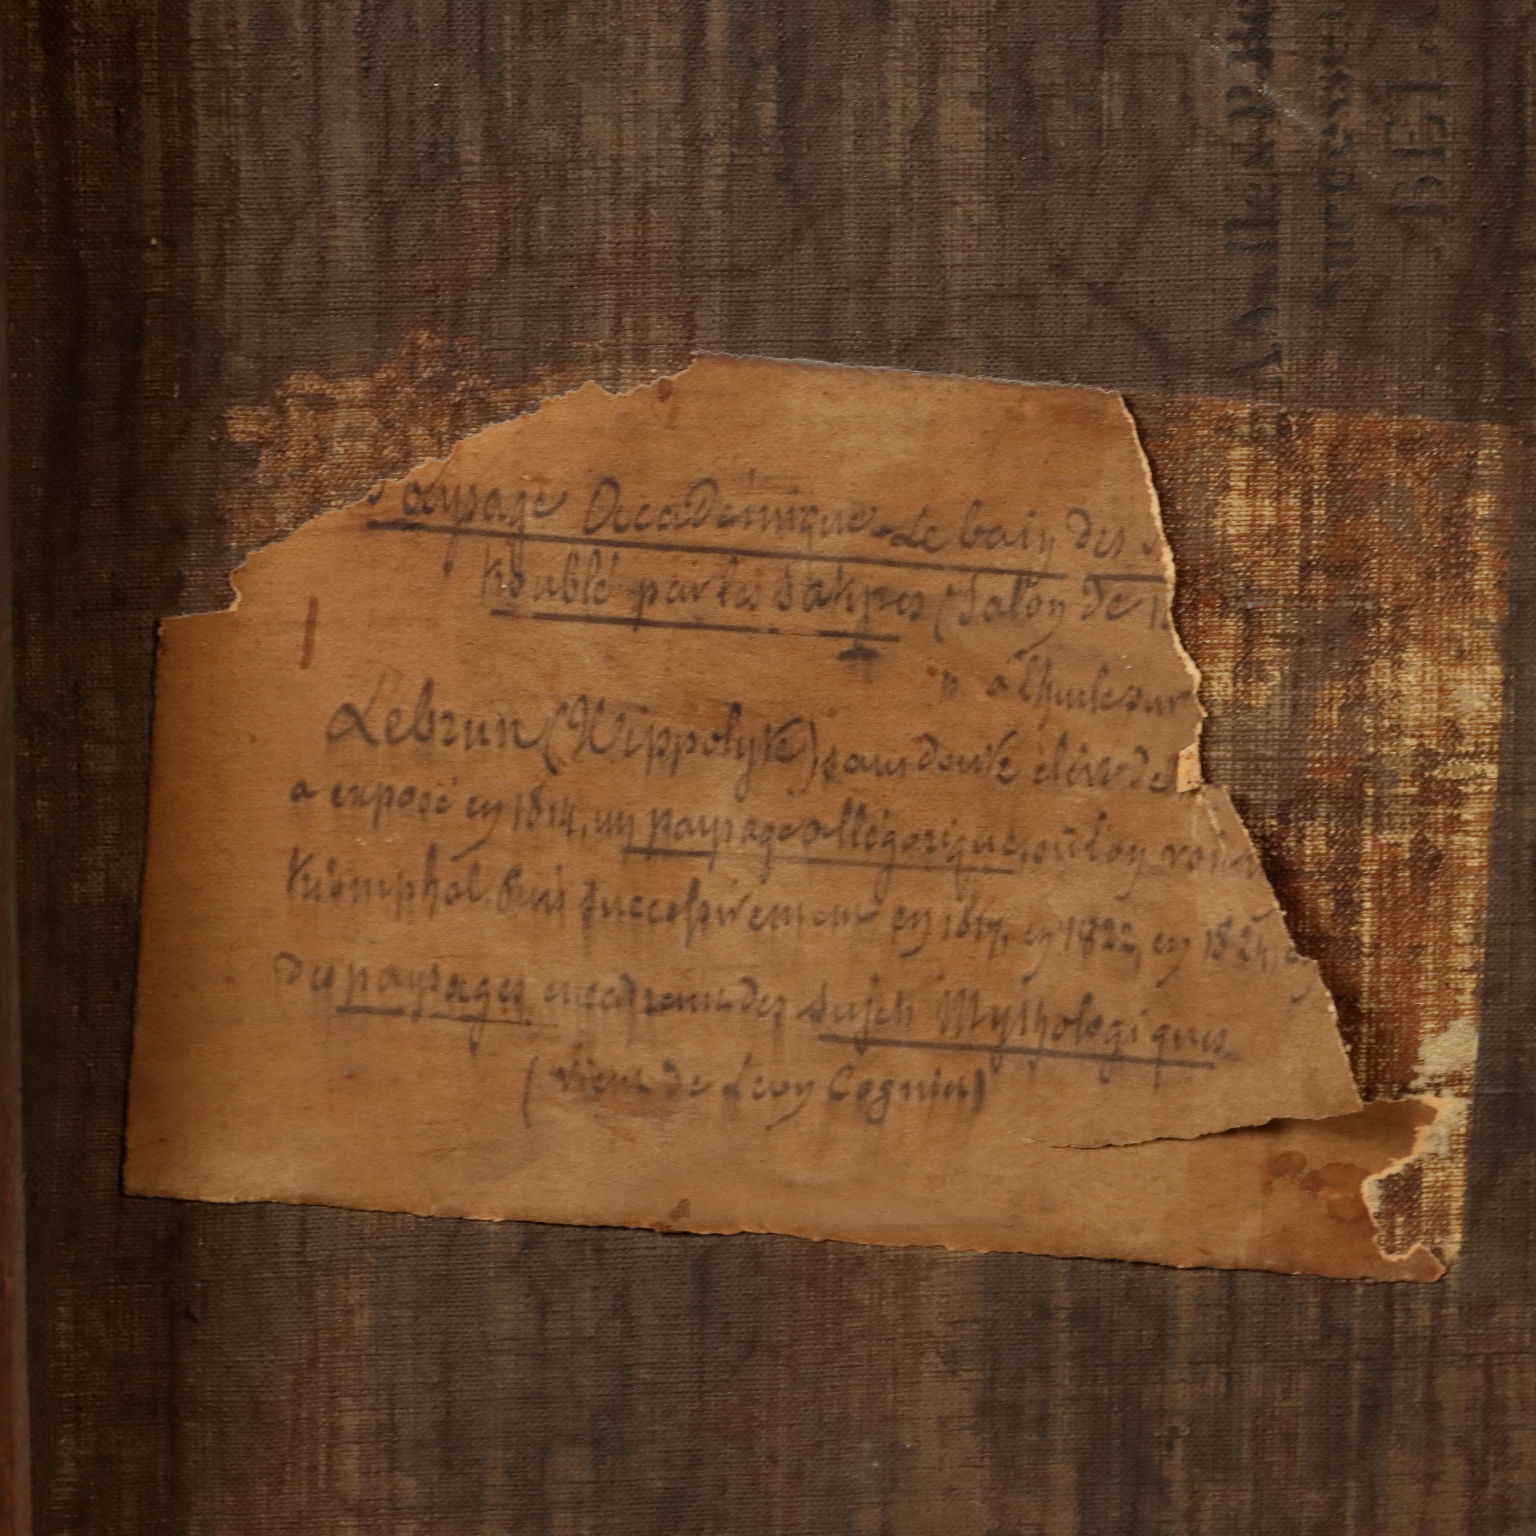 Paysage Académique. Le bain des
troublé par les Satyres (Salon de 1
à l'huile sur
Lebrun (Hippolyte) sans doute élève de
a exposé en 1814, un paysage allégorique, où l'on voit
triomphal. Puis successivement en 1817, en 1822, en 1824,
des paysages encadrant des sujets Mythologiques.
(vient de Léon Cogniet)
successeu
BEL